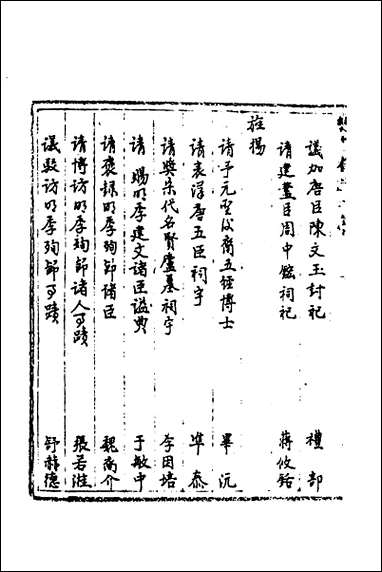 議加唐臣陳文玉封祀 禮部
請建藎臣周中鋐祠祀 蔣攸銛
旌揚
請予元聖後裔五經博士 畢沅
請表唐五臣祠宇 準泰
請奬宋代名賢廬墓祠宇 李因培
請 賜明季建文諸臣謚典 于敏中
請褒録明季殉節諸臣 魏裔介
請博訪明季殉節諸人事蹟 張若溎
議訪明季殉節事蹟 舒赫德